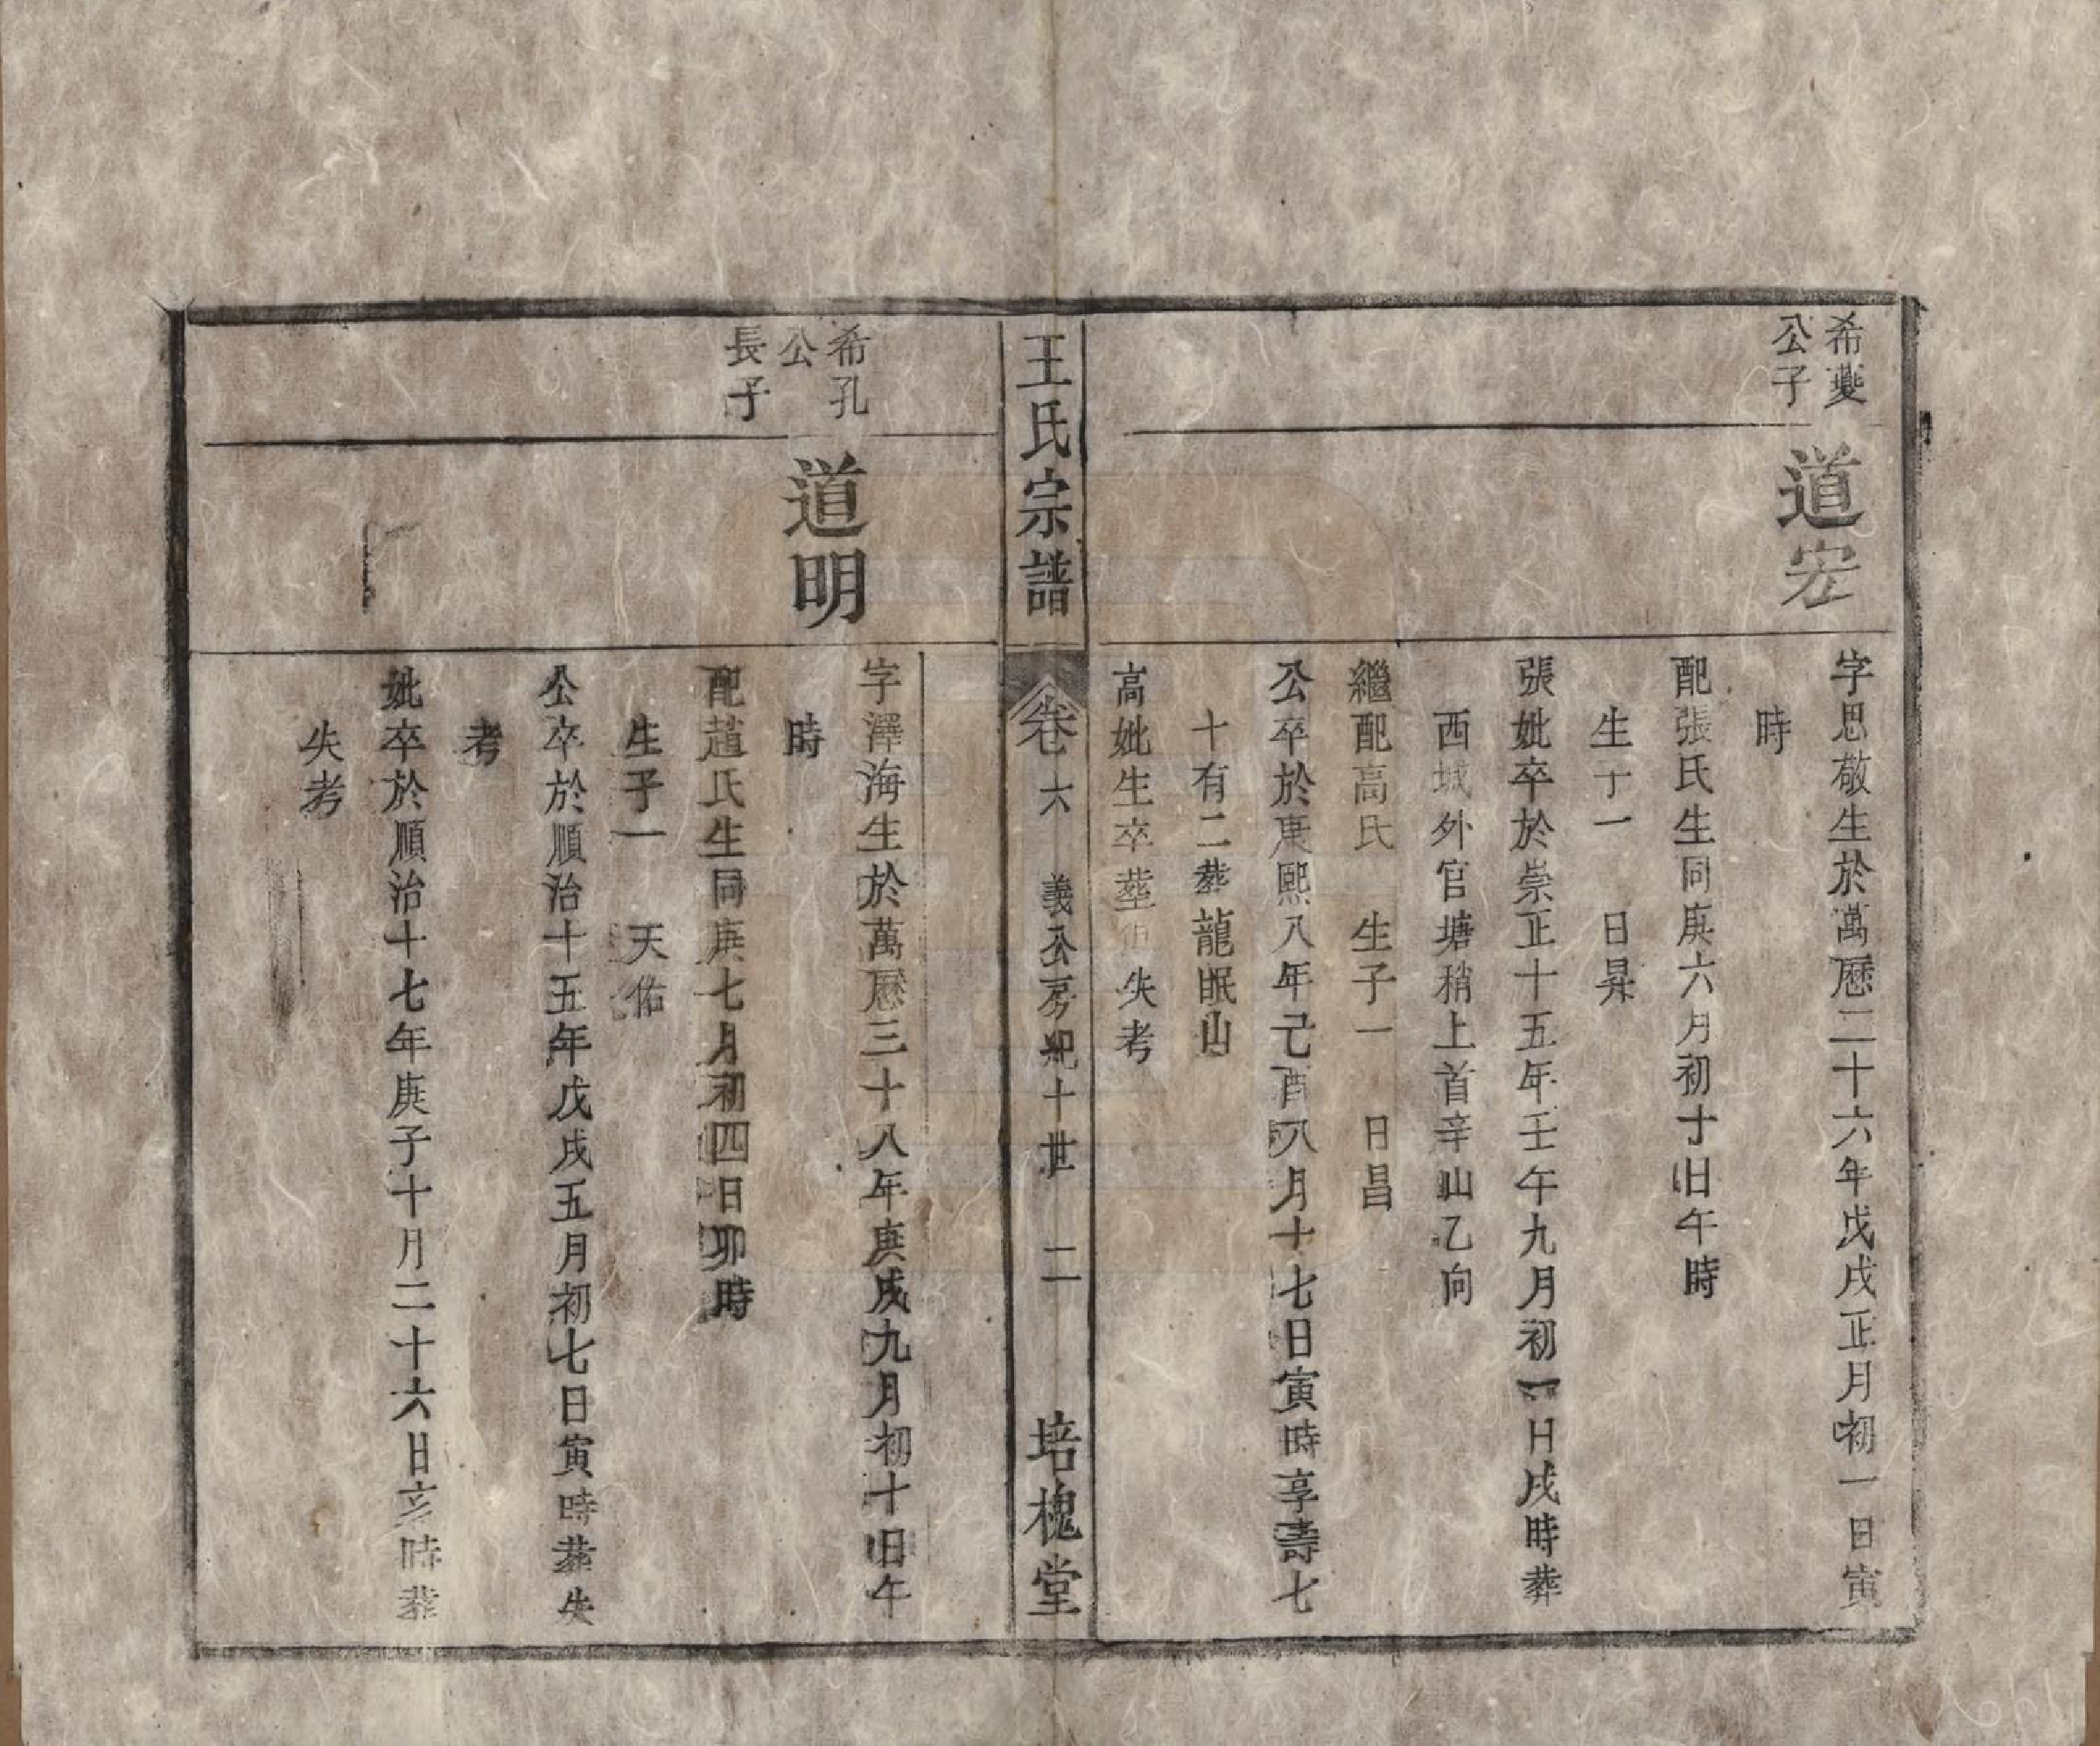 希夔
公子
道宏
字思敬生於萬曆二十六年戊戌正月初一日寅
時
配張氏生同庚六月初十日午時
生子一　日昇
張妣卒於崇正十五年壬午九月初一日戌時葬
西城外官塘稍上首辛山乙向
繼配高氏　生子一　日昌
公卒於康熙八年己酉八月十七日寅時享壽七
十有二葬龍眠山
高妣生卒塟俱失考
王氏宗譜　卷六　義公房䂓十世　二　培槐堂
希孔
公
長子
道明
字澤海生於萬曆三十八年庚戌九月初十日午
時
配趙氏生同庚七月初四日卯時
生子一　天佑
公卒於順治十五年戊戌五月初七日寅時葬失
考
妣卒於順治十七年庚子十月二十六日亥時葬
失考